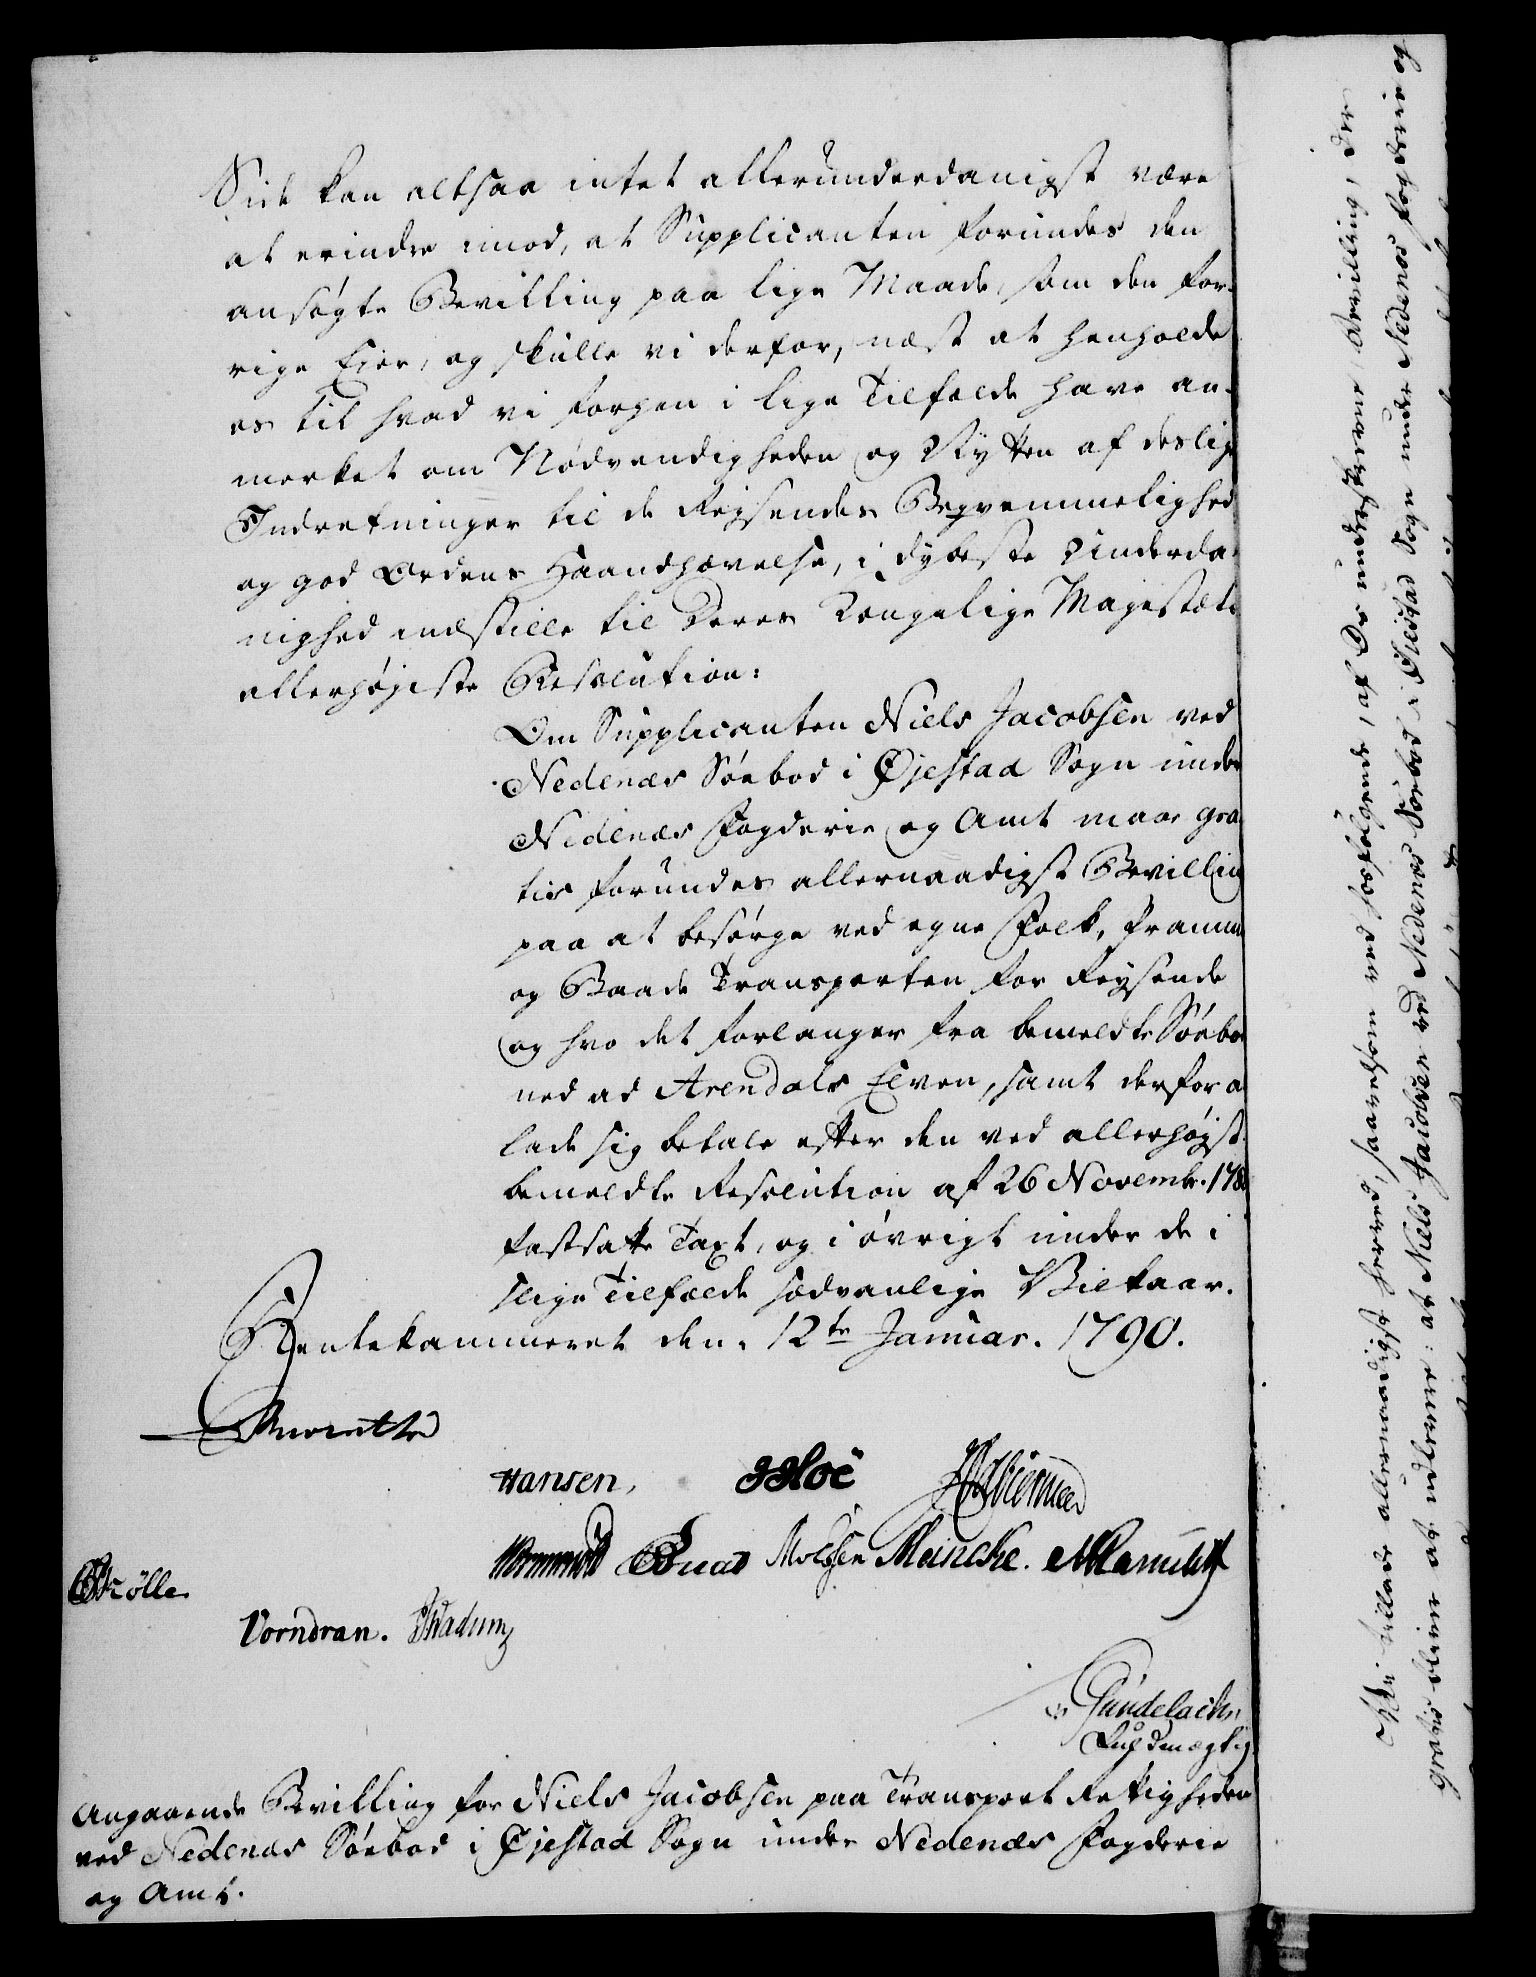 Side kan altsaa intet allerunderdanigst være
at erindre imod, at Supplicanten forundes den
ansøgte Bevilling paa lige Maade, som den for-
rige Eier, og skulle vi derfor, næst at henholde
os til hvad vi forhen i lige Tilfælde have an-
mærket om Nødvendigheden og Nytten af deslige
Indretninger til de Reysendes Beqvemmelighed
og god Ordens Haandhævelse, i dybeste Underda-
nighed indstille til Deres Kongelige Majestæts
allerhøjeste Resolution:
Om Supplicanten Niels Jacobsen ved
Nedenæs Sørbod i Øjestad Sogn under
Nedenæs Fogderie og Amt maae gra-
tis forundes allernaadigst Bevilling
paa at besørge ved egne Folk, Pramme
og Baade Transporten for Reysende
og hvo det forlanger fra bemeldte Sørbod
ned ad Arendals Elven, samt derfor at
lade sig betale efter den ved allerhøjst-
bemeldte Resolution af 26 Novembr. 178
fastsatte Taxt, og i øvrigt under de i
slige Tilfælde sædvanlige Vilkaar.
Rentekammeret den 12te Januar. 1790.
Hansen, Hoë
Meincke.
Krølle
Vorndran. Wadum
Gundelach,
Fuldmægtig
Angaaende Bevilling for Niels Jacobsen paa Transport Rettigheden
ved Nedenæs Sørbod i Øjestad Sogn under Nedenæs Fogderie
og Amt.
Vi ville allernaadigst herved, saavelsom ved hosfølgende, af Os underskrevne Bevilling, der
gratis bliver at udlevere: at Niels Jacobsen ved Nedenæs Sørbod i Øiestad Sogn under Nedenæs Fogderie og